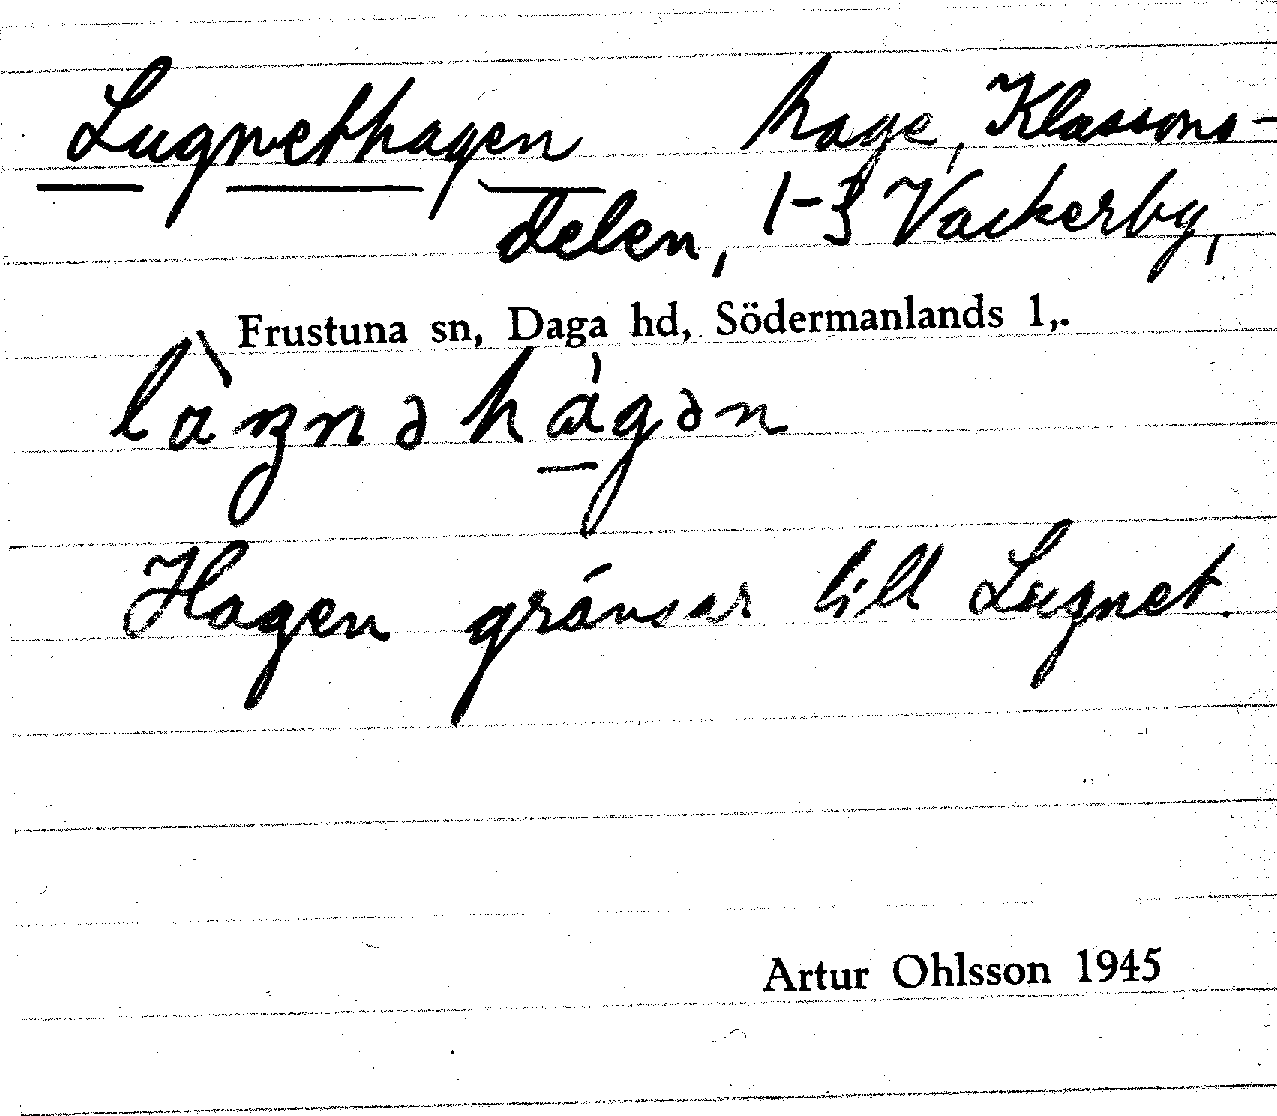 Lugnethagen hage, Klassons-
delen, 1-3 Vackerby,
Frustuna sn, Daga hd, Södermanlands l,.
Hagen gränsar till Lugnet.
Artur Ohlsson 1945